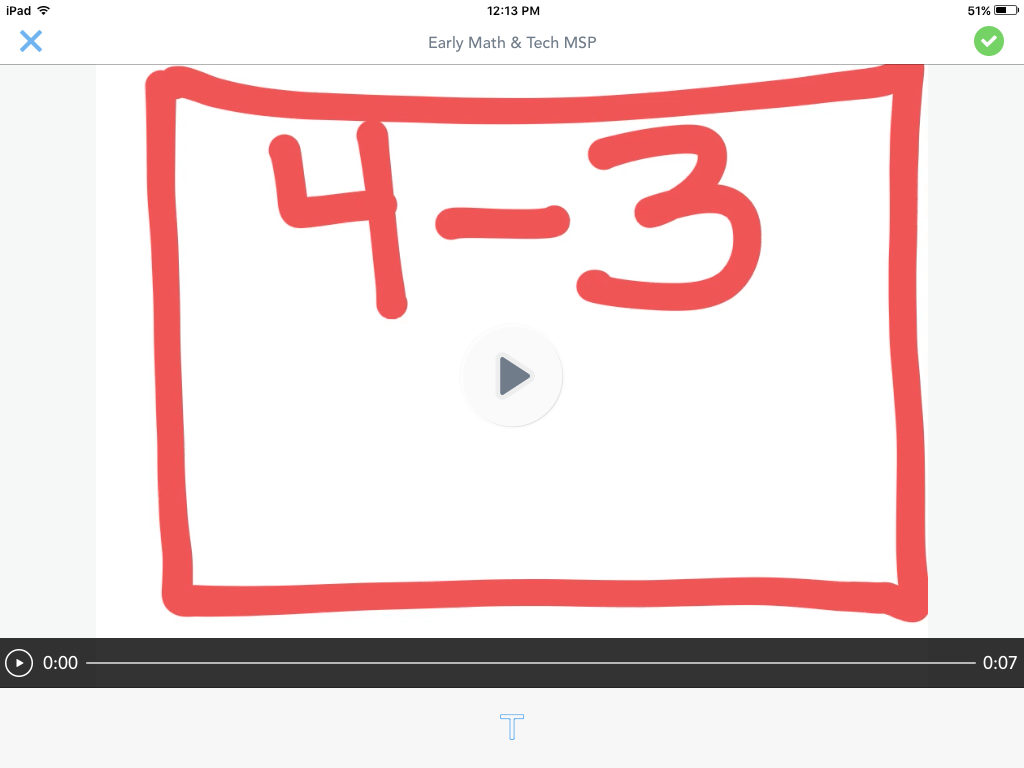 iPad 12:13 PM 51%
Early Math & Tech MSP
4 - 3
0:00 0:07
T